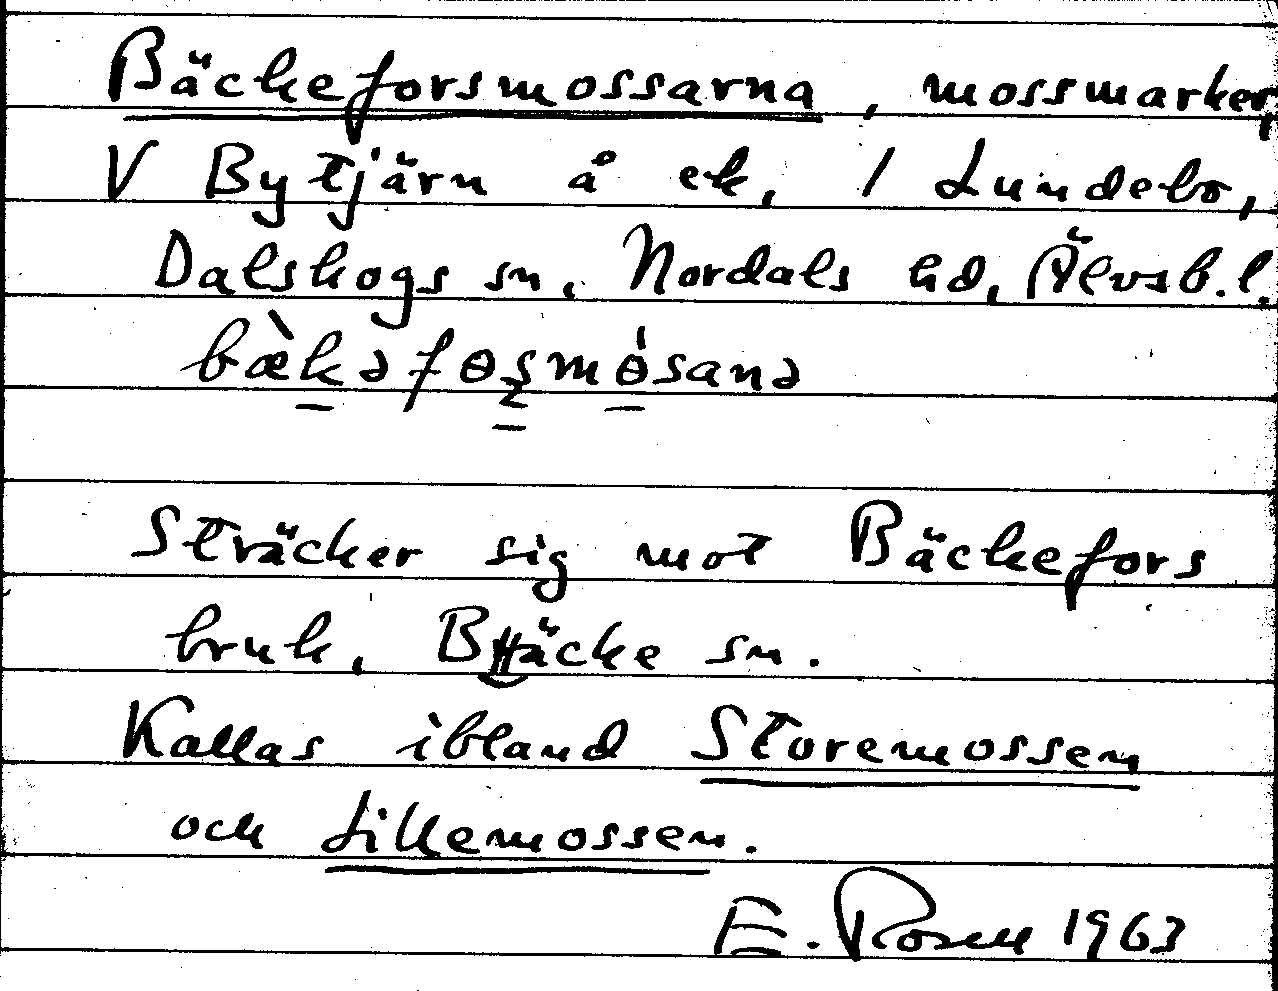 Bäckeforsmossarna, mossmarker,
V Bytjärn å ek, 1 Lundebo,
Dalskogs sn, Nordals hd, Älvsb.l.
bæ̀kəfɵsmɵ́sanə
Sträcker sig mot Bäckefors
bruk, Bäcke sn.
Kallas ibland Storemossen
och Lillemossen.
E. Rosen 1963